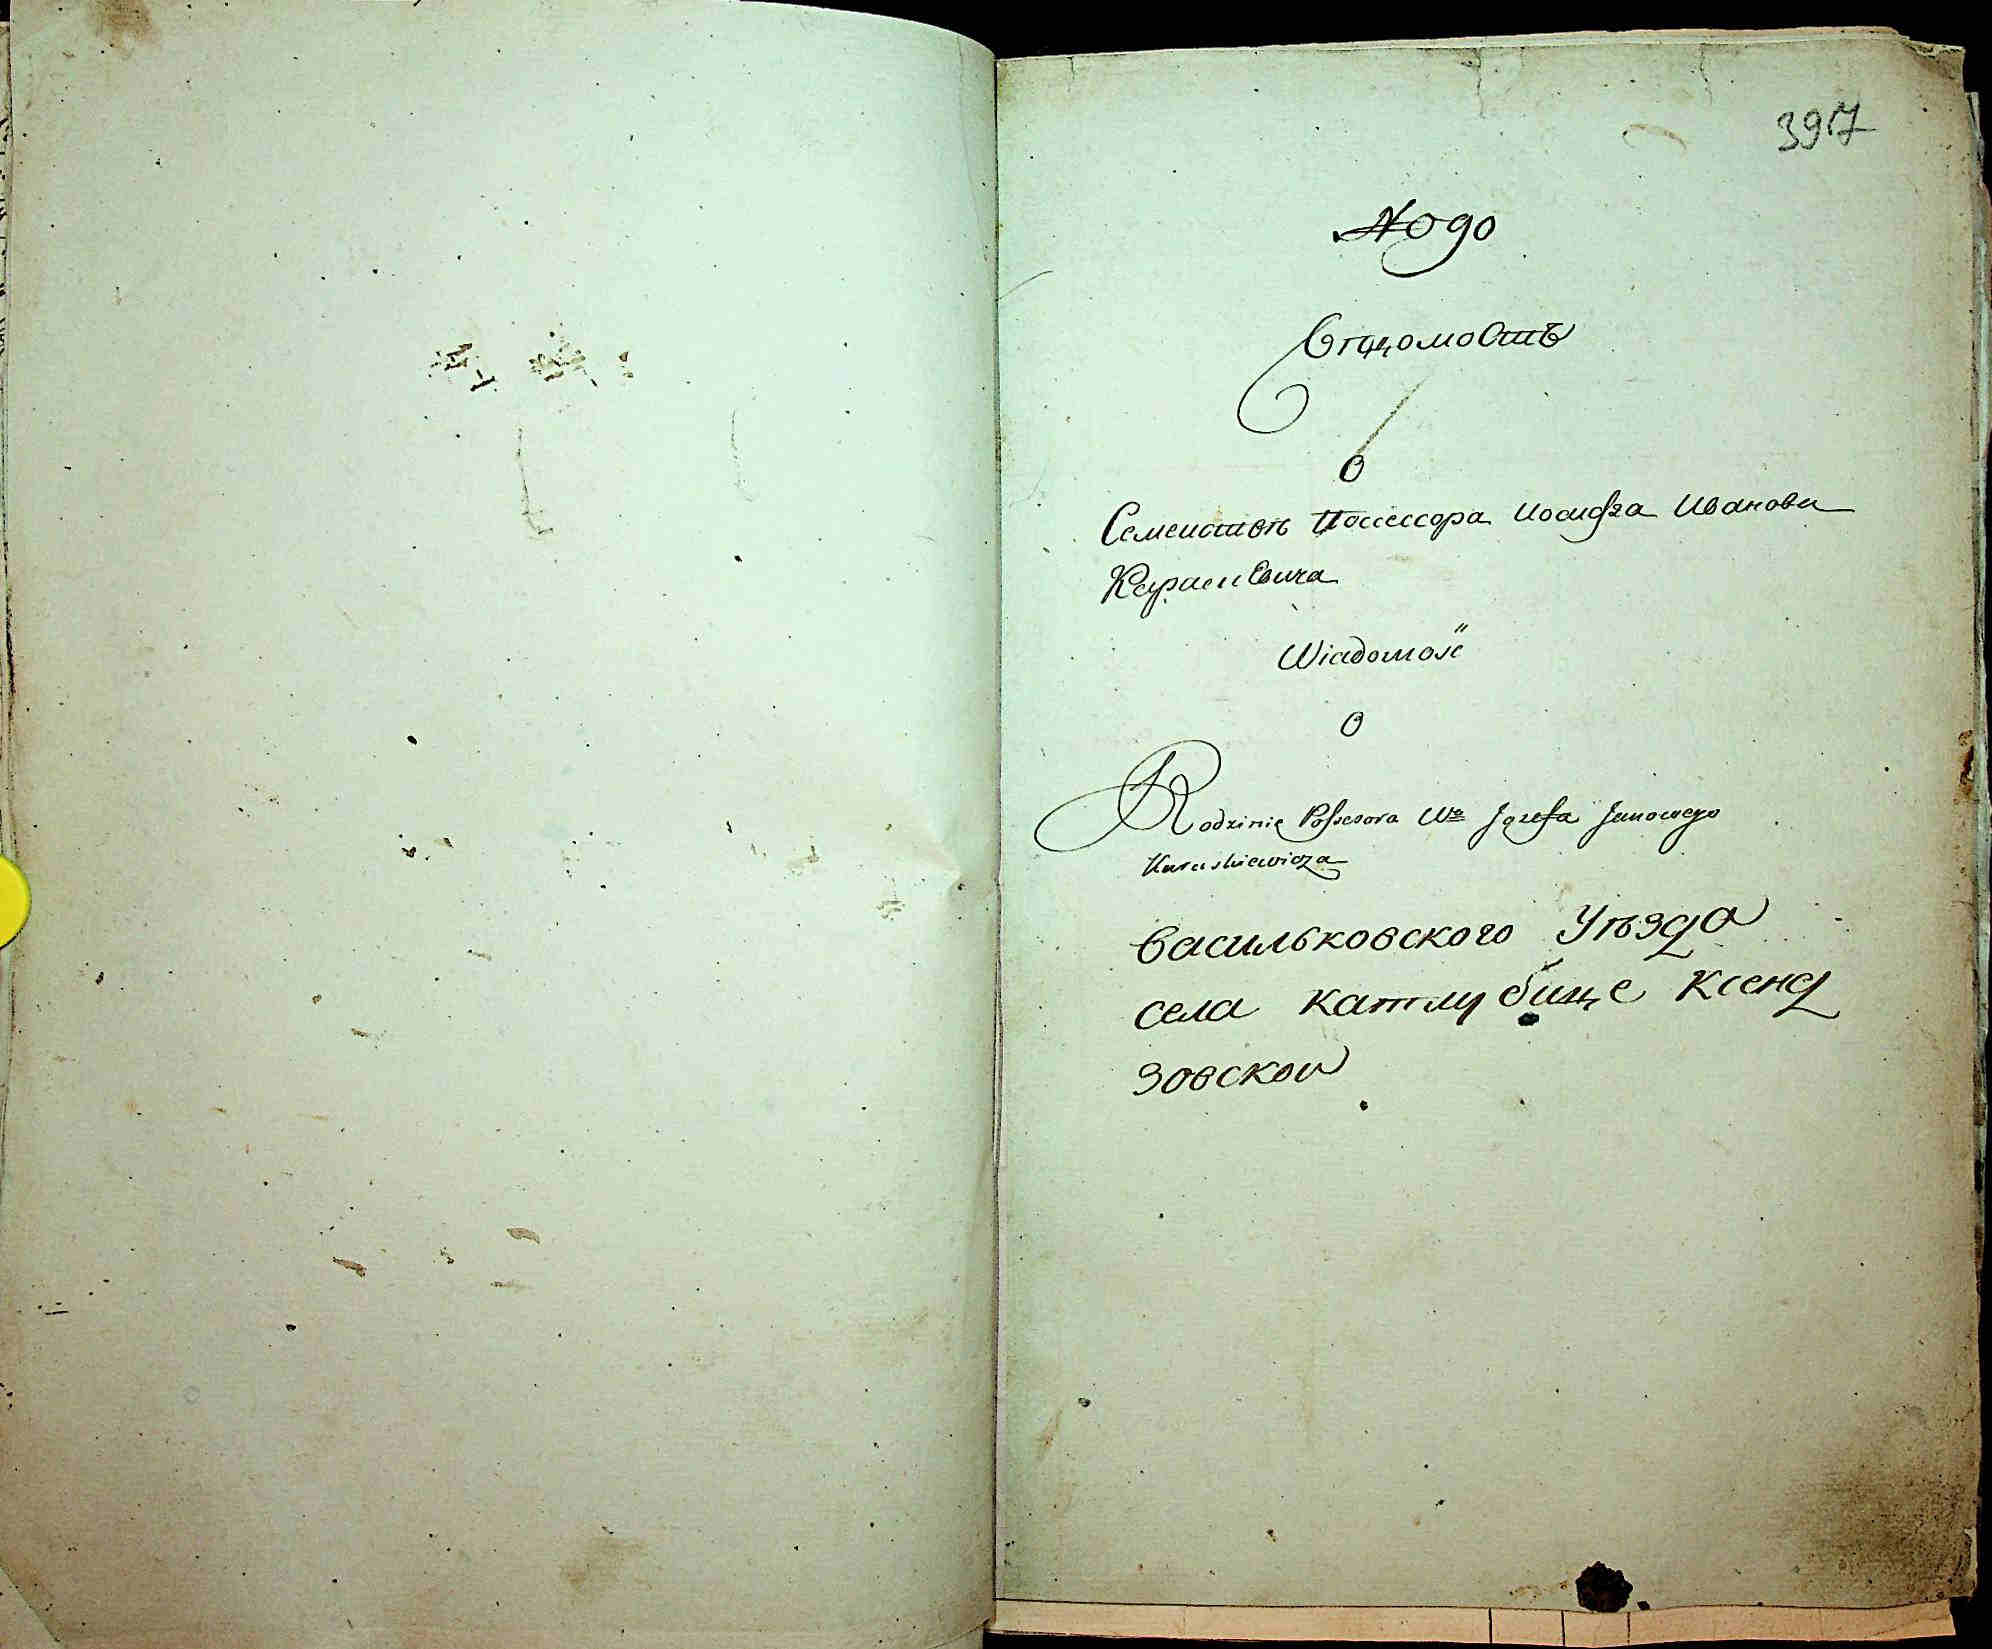 397
№ 90
Вѣдомость
О
Семействѣ Поссессора Иосифа Иванови
Карасиевича
Wiadomość
O
Rodzinie Possesora Wo Jozefa Janowego
Karaskiewicza
Васильковского Уѣзда
села Катлубице Ксенд
зовской